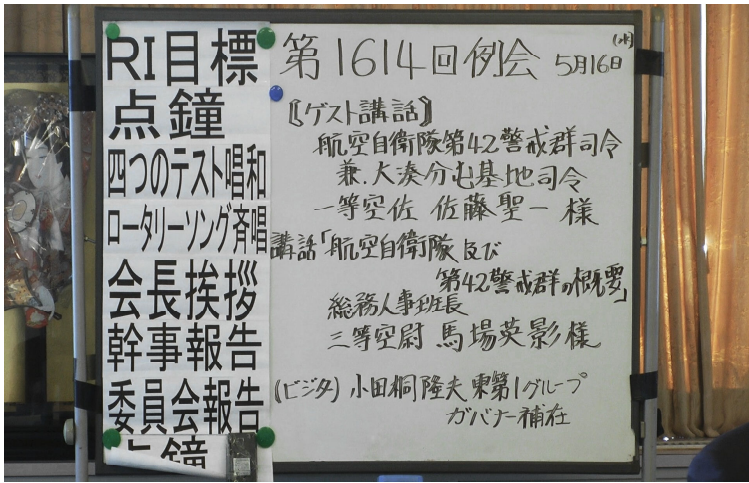 RI目標
点鐘
四つのテスト唱和
ロータリーソング斉唱
会長挨拶
幹事報告
委員会報告
点鐘
第1614回例会 5月16日(水)
〘ゲスト講話〙
航空自衛隊第42警戒群司令
兼.大湊分屯基地司令
一等空佐 佐藤聖一 様
講話「航空自衛隊及び
第42警戒群の概要」
総務人事班長
三等空尉 馬場英影様
(ビジタ) 小田桐隆夫 東第1グループ
ガバナー補在